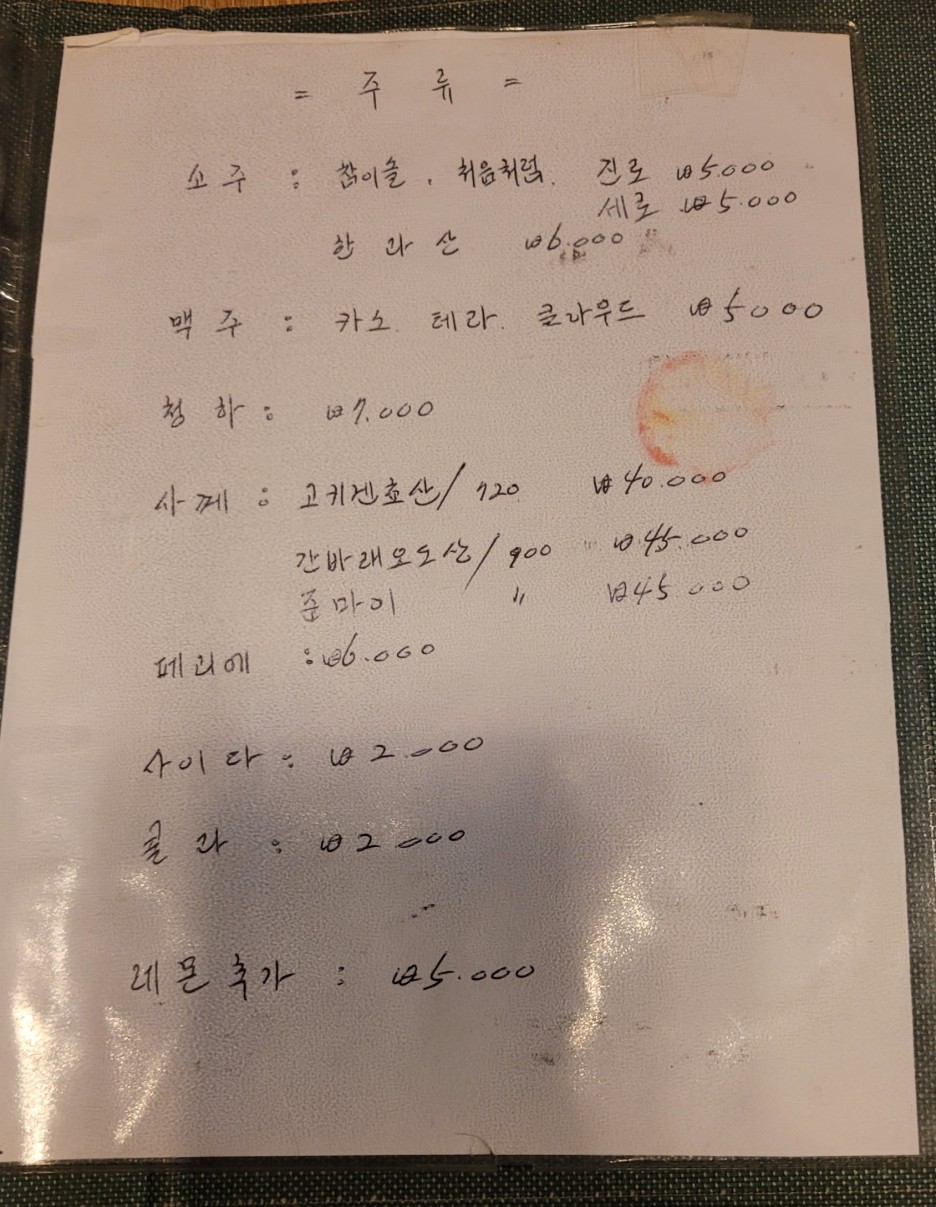 = 주 류 =
소 주 : 참이슬 , 처음처럼. 진로 ₩5.000
세로 ₩5.000
한 라 산 ₩6.000
맥 주 : 카스. 테라. 클라우드 ₩5000
청 하 : ₩7.000
사 께 : 고키겐쵸산/ 720 ₩40.000
간바래오도상/ 900 ₩45.000
준마이 〃 ₩45.000
페리에 : ₩6.000
사이다 : ₩2.000
콜 라 : ₩2.000
레몬추가 : ₩5.000